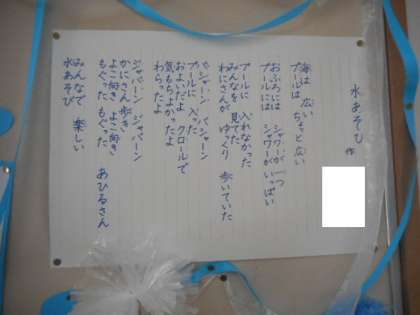 水あそび
作
海は 広い
プールは ちょっと広い
おふろには シャワーが一つ
プールには シャワーがいっぱい
プールに 入れなかった
みんなを 見てた
わにさんが ゆっくり 歩いていた
バシャーン バシャーン
プールに 入った
およいだよ クロールで
気もちよかったよ
わらったよ
ジャバーン ジャバーン
かにさん歩き
よこ向き よこ向き
もぐった もぐった あひるさん
みんなで 楽しい
水あそび